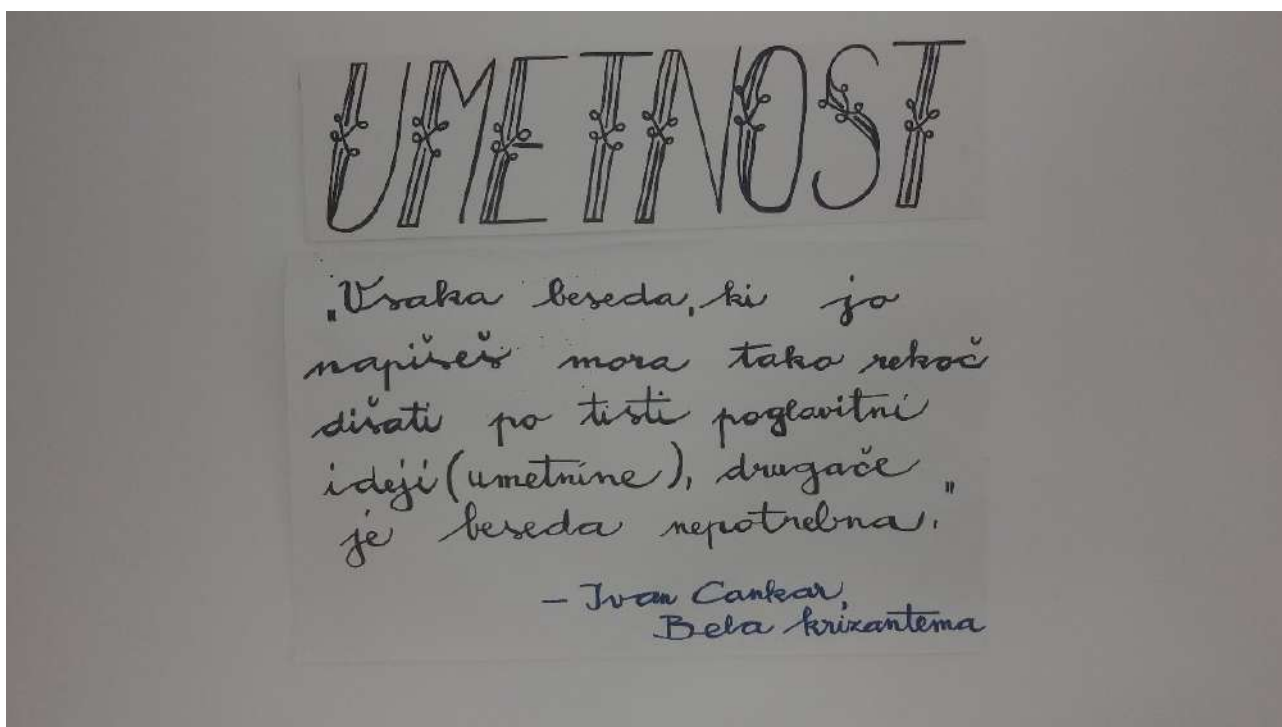 UMETNOST
„Vsaka beseda, ki jo
napišeš mora tako rekoč
dišati po tisti poglavitni
ideji (umetnine), drugače
je beseda nepotrebna."
- Ivan Cankar,
Bela krizantema